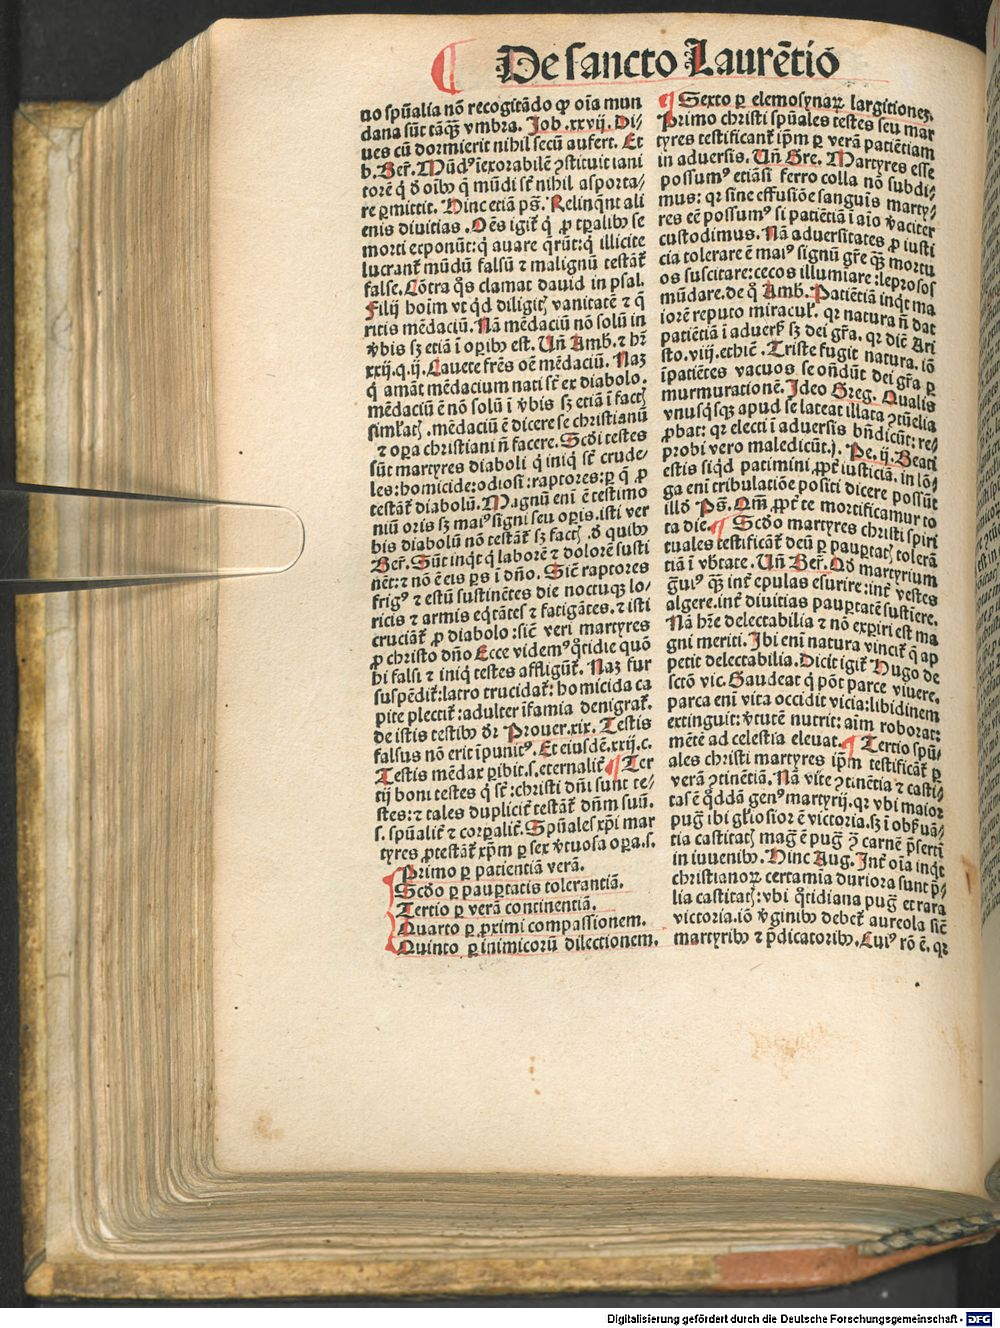 De sancto Laurētio
no spūalia nō recogitādo ꝙ oīa mun
dana sūt tāqȝ vmbra. Job .xxvij. Di⸗
ues cū dormierit nihil secū aufert. Et
b. Ber. Mūdꝰ īexorabilē ꝯstituit iani
torē q̇ d̄ oībꝰ q̇ mūdi sūt nihil asporta⸗
re ꝑmittit. Hinc etiā ps. Relinqnt ali
enis diuitias. Oēs igit q̇ ꝓ tꝑalibꝰ se
morti exponūt: q̇ auare q̄rūt: q̇ illicite
lucrant mūdū falsū ⁊ malignū testāt
false. Cōtra q̊s clamat dauid in psal.
Filij hoim vt qd diligitꝭ vanitatē ⁊ q̄
ritis mēdaciū. Nā mēdaciū nō solū in
v̓bis sȝ etiā ī oꝑibꝰ est. Uñ Amb. ⁊ hr̄
xxij. q. ij. Cauete fr̄es oē mēdaciū. Naȝ
q̇ amāt mēdacium nati sūt ex diabolo.
mēdaciū ē nō solū ī v̓bis sȝ etiā ī factꝭ
simlatꝭ. mēdaciū ē dicere se christianū
⁊ oꝑa christiani ñ facere. Scd̓i testes
sūt martyres diaboli q̇ iniq̇ sūt crude⸗
les: homicide: odiosi: raptores: ꝑ q̇ ꝓ
testāt diabolū. Magnū enī ē testimo
niū oris sȝ maiꝰ signi seu oꝑis. isti ver
bis diabolū nō testāt sȝ factꝭ. d̄ quibꝰ
Ber. Sūt inqt q̇ laborē ⁊ dolorē susti
nēt: ⁊ nō ē eis ꝑs ī dn̄o. Sic̄ raptores
frigꝰ ⁊ estū sustinētes die noctuqȝ lo⸗
ricis ⁊ armis eq̇tātes ⁊ fatigātes. ⁊ isti
cruciāt ꝓ diabolo: sic̄ veri martyres
ꝓ christo dn̄o Ecce videmꝰ q̊tidie quō
hi falsi ⁊ iniq̇ testes affligūt. Naȝ fur
suspēdit: latro trucidat: homicida ca
pite plectit: adulter īfamia denigrat.
de istis testibꝰ d̄r Prouer. xix. Testis
falsus nō erit īpunitꝰ. Et eiusdē. xxij. c.
Testis mēdax ꝑibit. s. eternalit̓ ¶ Ter
tij boni testes q̇ sūt: christi dn̄i sunt te⸗
stes: ⁊ tales duplicit̓ testāt dn̄m suū.
s. spūalit̓ ⁊ corꝑalit̓. Spūales xp̄i mar
tyres ꝓtestāt xp̄m ꝑ sex v̓tuosa oꝑa. s.
Primo ꝑ patientiā verā.
Scd̓o ꝑ pauꝑtatis tolerantiā.
Tertio ꝑ verā continentiā.
Quarto ꝑ ꝓximi compassionem.
Quinto ꝑ inimicorū dilectionem.
¶ Sexto ꝑ elemosynaꝝ largitioneȝ.
Primo christi spūales testes seu mar
tyres testificant ip̄m ꝑ verā patiētiam
in aduersis. Uñ Gre. Martyres esse
possumꝰ etiāsi ferro colla nō subdi⸗
mus: qꝛ sine effusiōe sanguīs marty⸗
res eē possumꝰ si patiētiā ī aīo v̓aciter
custodimus. Nā aduersitates ꝓ iusti
cia tolerare ē maiꝰ signū gr̄e qȝ mortu
os suscitare: cecos illumiare: leprosos
mūdare. de q̊ Amb. Patiētiā inqt ma
iorē reputo miracul. qꝛ natura ñ dat
patiētiā ī aduers̓ sȝ dei gr̄a. qꝛ diē Ari
sto. viij. ethic̄. Triste fugit natura. iō
īpatiētes vacuos se on̄dūt dei gr̄a ꝑ
murmurationē. Ideo Greg. Qualis
vnusq̇sqȝ apud se lateat illata ꝯtūelia
ꝓbat: qꝛ electi ī aduersis bn̄dicūt: re⸗
probi vero maledicūt. j. Pe. ij. Beati
estis siq̇d patimini ꝓpt̓ iusticiā. in lō⸗
ga enī tribulatiōe positi dicere possūt
illd̓ Ps. Qm̄ ꝓpt̓ te mortificamur to
ta die. ¶ Scd̓o martyres christi spiri
tuales testificāt deū ꝑ pauꝑtatꝭ tolerā
tiā ī vb̓tate. Uñ Ber. Qd̓ martyrium
g̓uiꝰ qȝ int̓ epulas esurire: int̓ vestes
algere. int̓ diuitias pauꝑtatē sustīere.
Nā hr̄e delectabilia ⁊ nō exꝑiri est ma
gni meriti. Ibi enī natura vincit q̄ ap
petit delectabilia. Dicit igit Hugo de
sctō vic. Gaudeat q̇ pōt parce viuere.
parca enī vita occidit vicia: libidinem
extinguit: v̓tutē nutrit: aīm roborat:
mētē ad celestia eleuat. ¶ Tertio spū⸗
ales christi martyres ip̄m testificāt ꝑ
verā ꝯtinētiā. Nā vite ꝯtinētia ⁊ casti⸗
tas ē q̊ddā genꝰ martyrij. qꝛ vbi maior
pug̃ ibi gl̄iosior ē victoria. sȝ ī obs̓uā⸗
tia castitatꝭ mag̃ ē pug̃ ꝯ̄ carnē p̄sertī
in iuuenibꝰ. Hinc Aug. Int̓ oīa inqt
christianoꝝ certamīa duriora sunt p̄⸗
lia castitatꝭ: vbi q̊tidiana pug̃ et rara
victoria. iō v̓ginibꝰ debet aureola sic̄
martyribꝰ ⁊ p̄dicatoribꝰ. Cuiꝰ rō ē. qꝛ
Digitalisierung gefördert durch die Deutsche Forschungsgemeinschaft - DFG